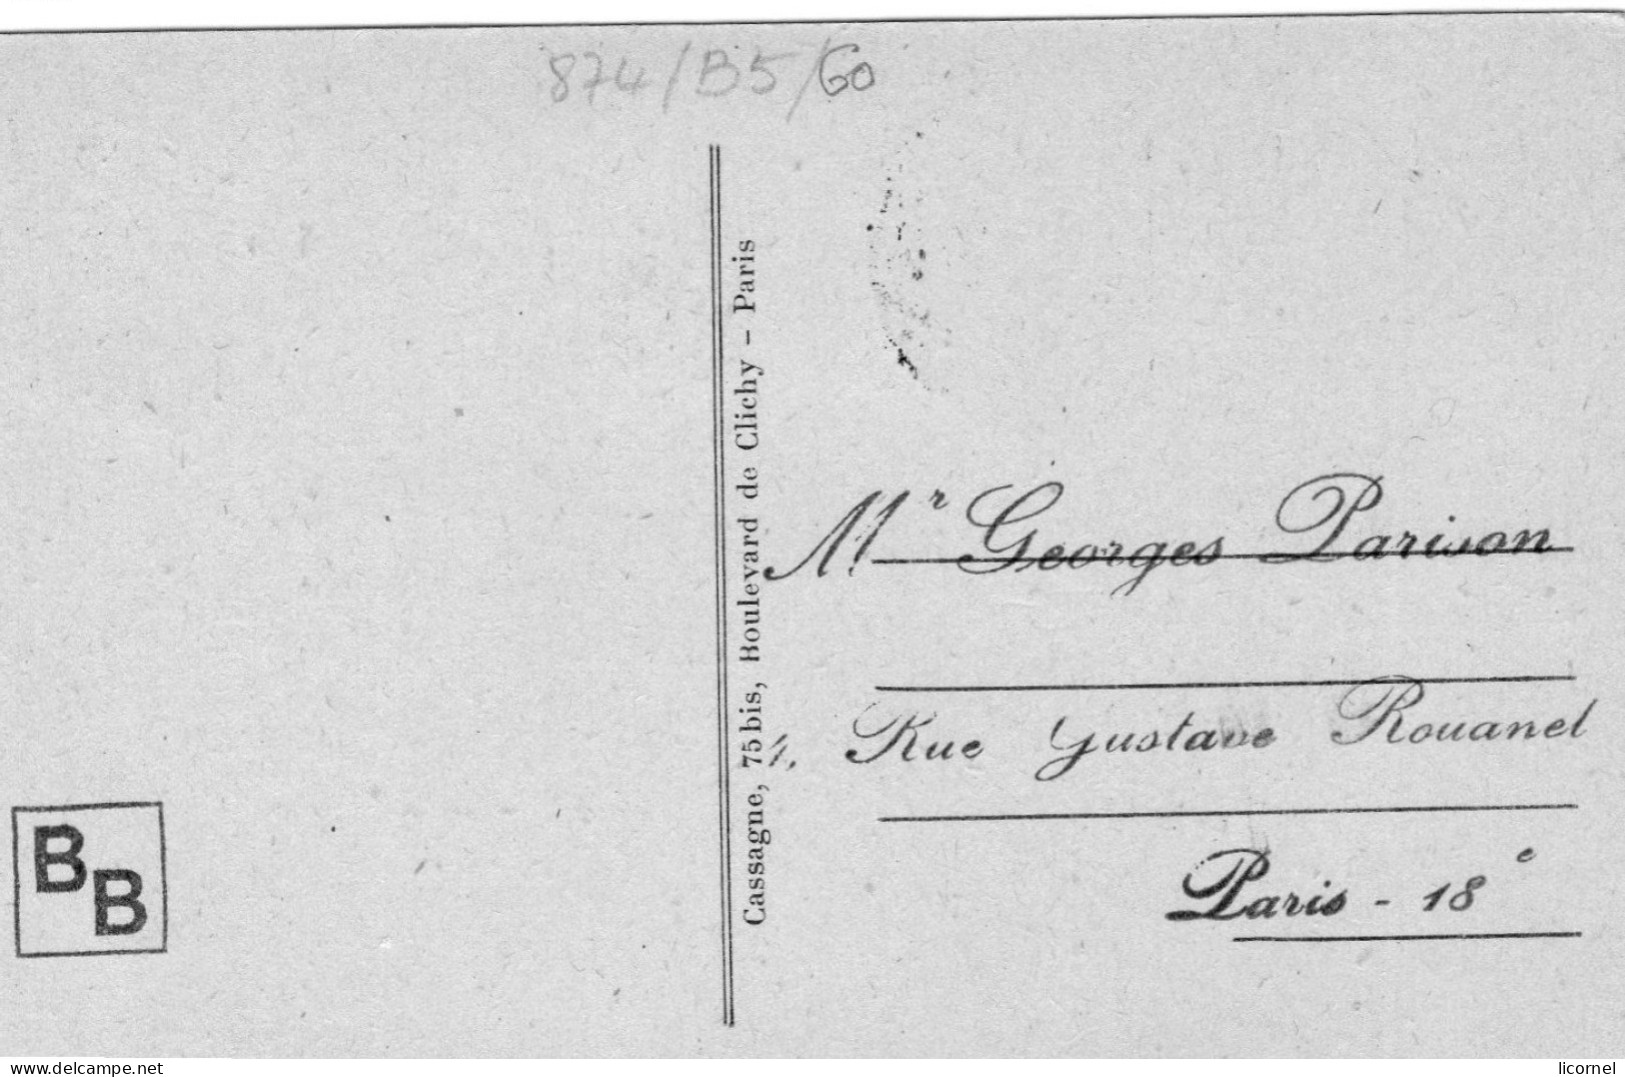 874/B5/60
Cassagne, 75bis, Boulevard de Clichy – Paris
Mr Georges Parison
4, Rue Gustave Rouanel
Paris - 18e
B
B
delcampe.net
licornel